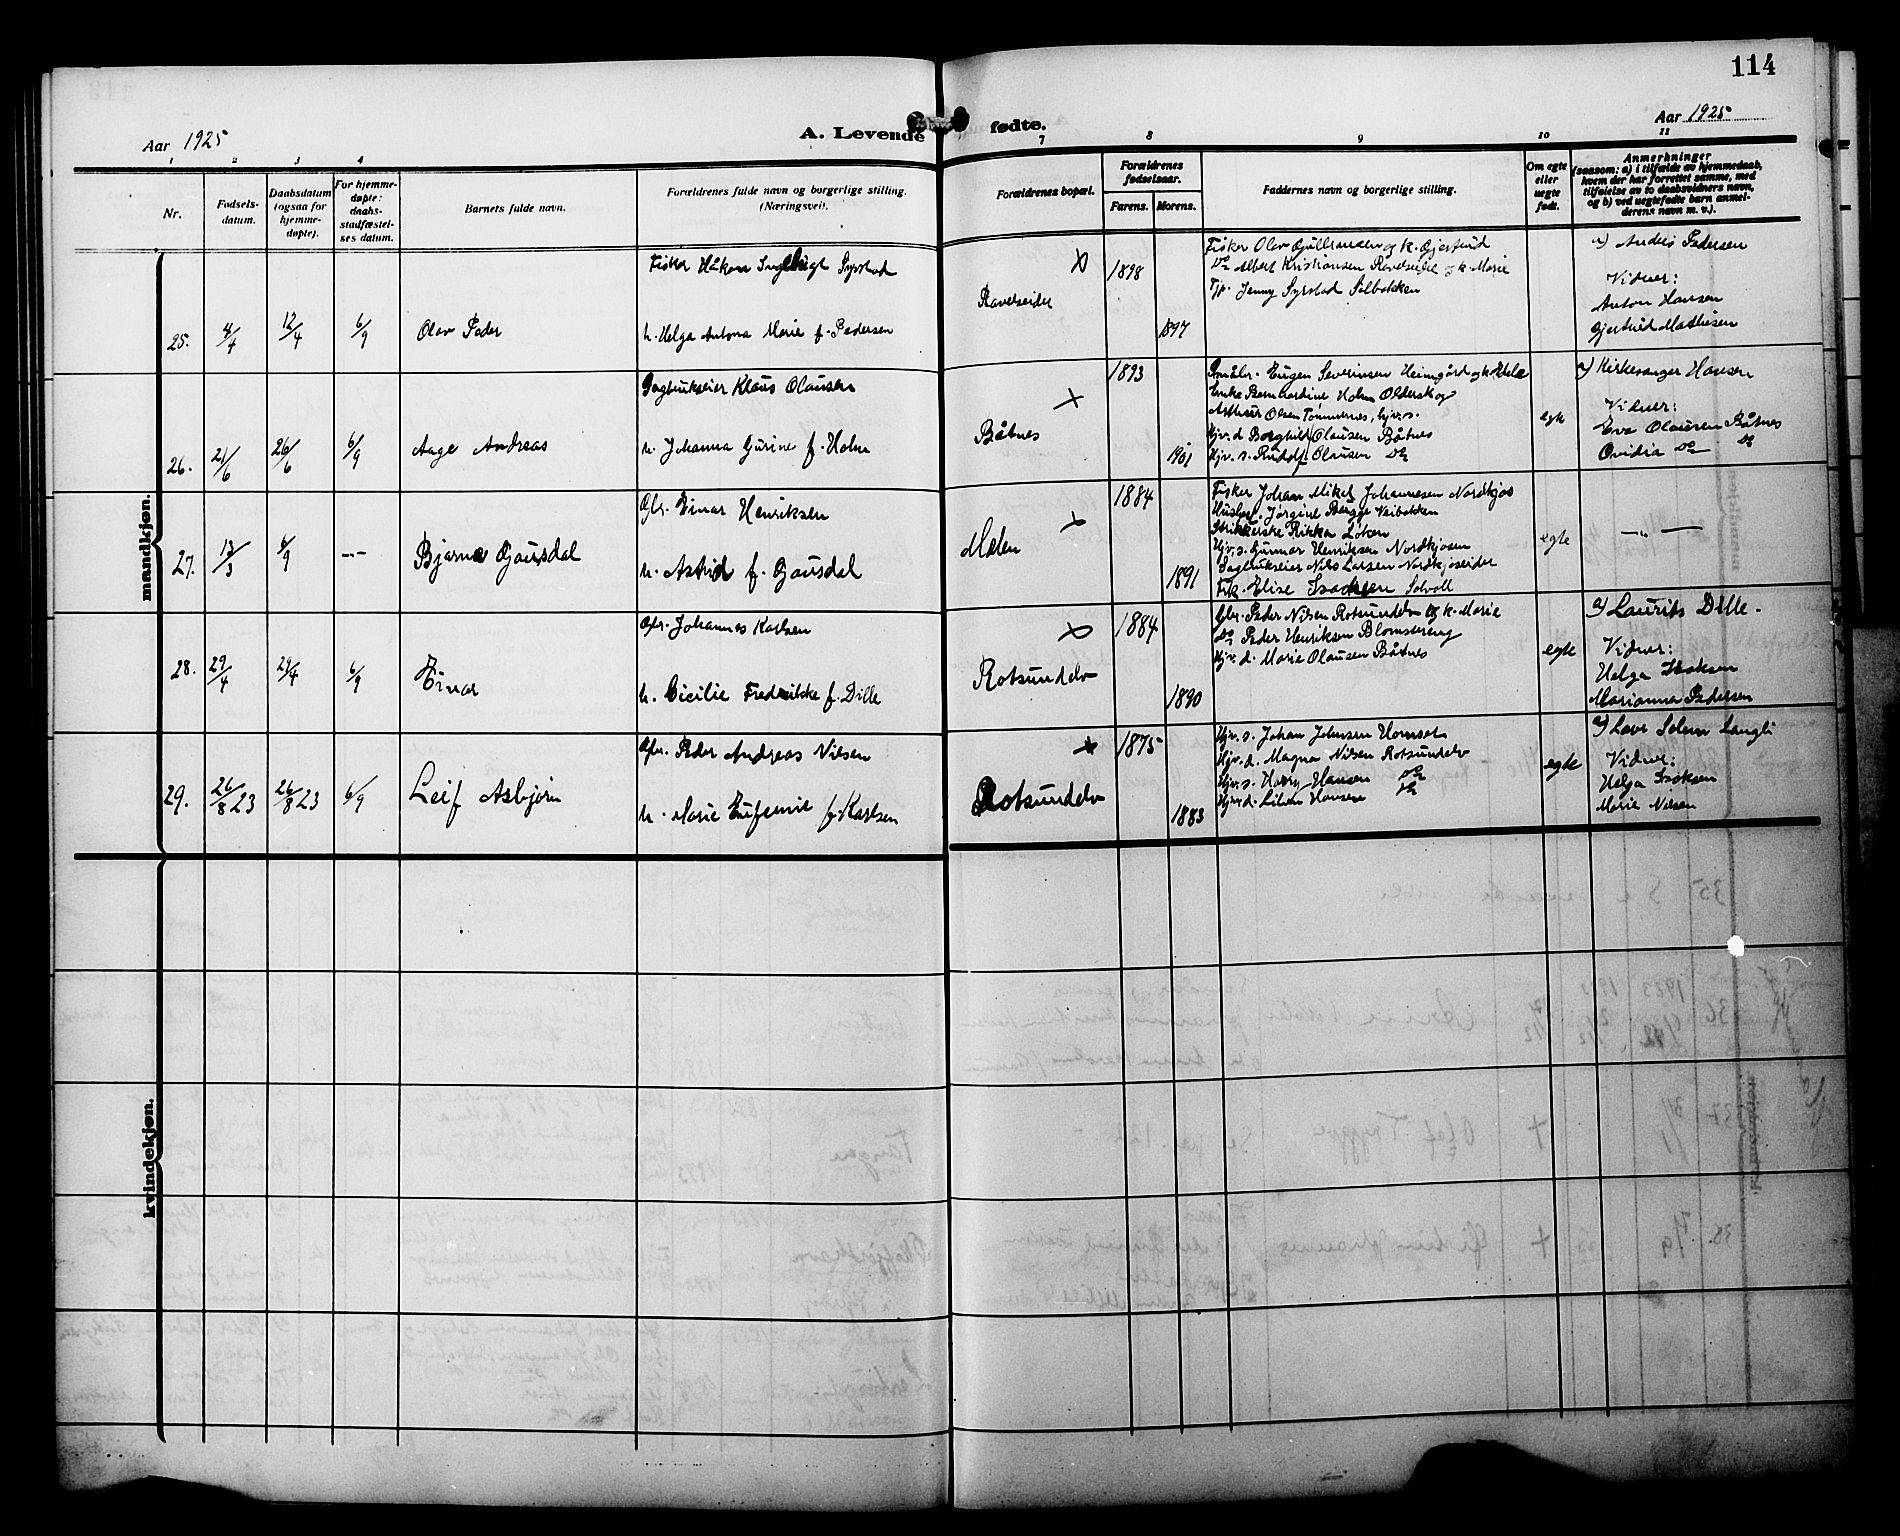 114
Aar 1925
A. Levende fødte.
Aar 1925
1 2 3 4 7 8 9 10 11
Nr.
Fødsels-
datum.
Daabsdatum
(ogsaa for
hjemme-
døpte).
For hjemme-
døpte:
daabs-
stadfæstel-
ses datum.
Barnets fulde navn.
Forældrenes fulde navn og borgerlige stilling.
(Næringsvei).
Forældrenes bopæl.
Forældrenes
fødselsaar.
Farens. Morens.
Faddernes navn og borgerlige stilling.
Om egte
eller
uegte
født.
Anmerkninger
(saasom: a) i tilfælde av hjemmedaab,
hvem der har forrettet samme, med
tilføielse av to daabsvidners navn,
og b) ved uegtefødte barn anmel-
derens navn m. v.).
mandkjøn.
25. 4/4 12/4 6/9 Olav Peder
Fisker Håkon Syrstad
h. Helga Antona Marie f. Pedersen
Ravelseidet
1898
1897
Fisker Olav Gulbransen og k. Gjertrud
Do Albert Kristiansen Ravelseidet og k. Marie
Tjp. Jenny Syrstad Solbakken
a) Anders Pedersen
Vidner:
Anton Hansen
Gjertrud Mathisen
26. 21/6 26/6 6/9 Aage Andreas
Sagbrukseier Klaus Olausen
h. Johanna Gurine f. Holm
Båtnes
1893
1901
Småbr. Eugen Severinsen Heimgård og k.
Enke Bernhardine Holm Olderskog
Arthur Olsen Tømmernes, hjv. s.
Hjv. d Borghild Olausen Båtnes
Hjv. s. Rudolf Olausen Do
egte
a) Kirkesanger Hansen
Vidner:
Eva Olausen Båtnes
Ovidia Do Do
27. 13/3 6/9 --- Bjarne Gausdal
Gbr. Einar Henriksen
h. Astrid f. Gausdal
Molen
1884
1891
Fisker Johan Mikal Johannesen Nordkjos
Husbest. Jørgine Bergge Neibakken
Strikkerske Rikka Løken
Hjv. s. Gunnar Henriksen Nordkjosen
Sagbrukseier Nils Larsen Nordkjoseidet
Frk. Elise Isachsen Solvoll
egte
— „ —
28. 29/4 29/4 6/9 Einar
Gbr. Johannes Karlsen
h. Cicilie Fredrikke f. Dille
Rotsundelv
1884
1890
Gbr. Peder Nilsen Rotsundelv og k. Marie
Do Peder Henriksen Blomstereng
Hjv. d. Marie Olausen Båtnes
egte
a) Laurits Dille.
Vidner:
Helga Isaksen
Marianna Pedersen
29. 26/8 23 26/8 23 6/9 Leif Asbjørn
Gbr. Peder Andreas Nilsen
h. Marie Eufemie f. Karlsen
Rotsundelv
1875
1883
Hjv. s. Johan Johnsen Hamset
Hjv. d. Magna Nilsen Rotsundelv
Hjv. s. Harry Hansen Do
Hjv. d. Lilian Hansen Do
egte
a) Lars Solem Langli
Vidner:
Helga Isaksen
Marie Nilsen
kvindekjøn.